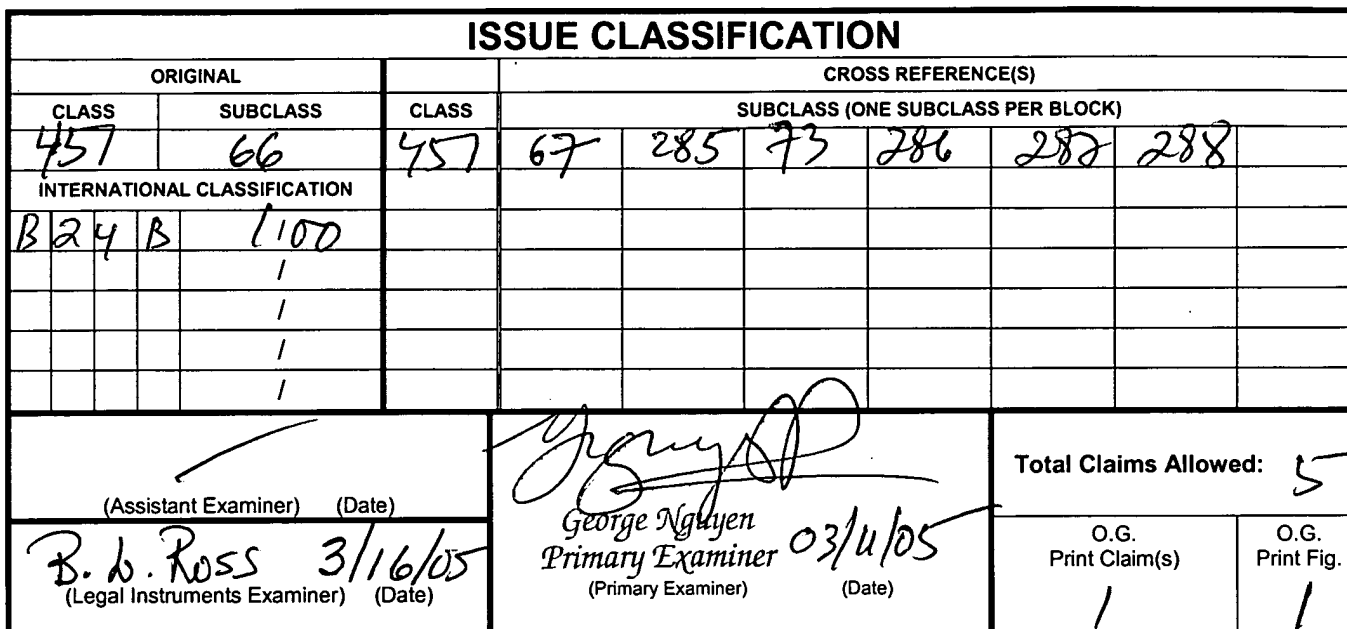 ISSUE CLASSIFICATION
ORIGINAL CROSS REFERENCE(S)
CLASS SUBCLASS CLASS SUBCLASS (ONE SUBCLASS PER BLOCK)
451 66 451 67 285 73 286 287 288
INTERNATIONAL CLASSIFICATION
B 2 4 B 1/00
/
/
/
/
(Assistant Examiner) (Date)
B. L. Ross 3/16/05
(Legal Instruments Examiner) (Date)
George Nguyen
Primary Examiner 03/11/05
(Primary Examiner) (Date)
Total Claims Allowed: 5
O.G. Print Claim(s)
1
O.G. Print Fig.
1